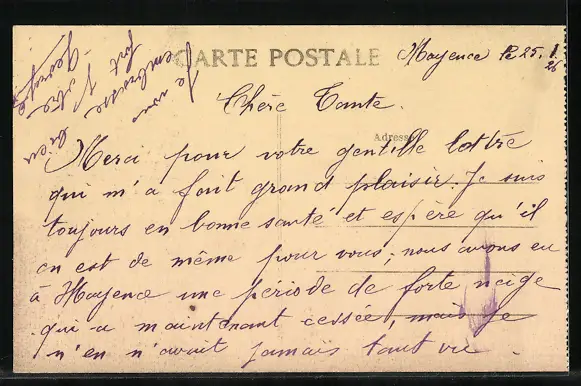 CARTE POSTALE
Mayence le 25.1.26
Chère Tante.
Adresse
Merci pour votre gentille lettre
qui m'a fait grand plaisir. Je suis
toujours en bonne santé et espère qu'il
en est de même pour vous; nous avons eu
à Mayence une période de forte neige
qui a maintenant cessée, mais je
n'en n'avait jamais tant vu.
Je vous
embrasse
fort
Votre